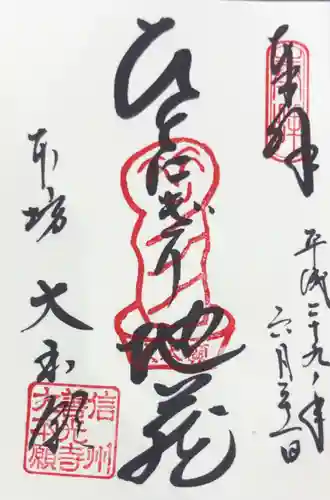 奉拝
平成二十九年
六月 日
ひとにぎり地蔵
本坊 大本願
信州
善光寺
大本願